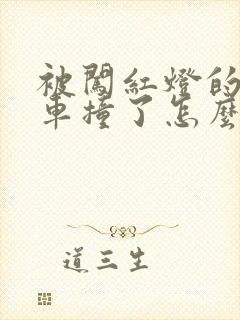 被闖紅燈的
車撞了怎麼
道三生